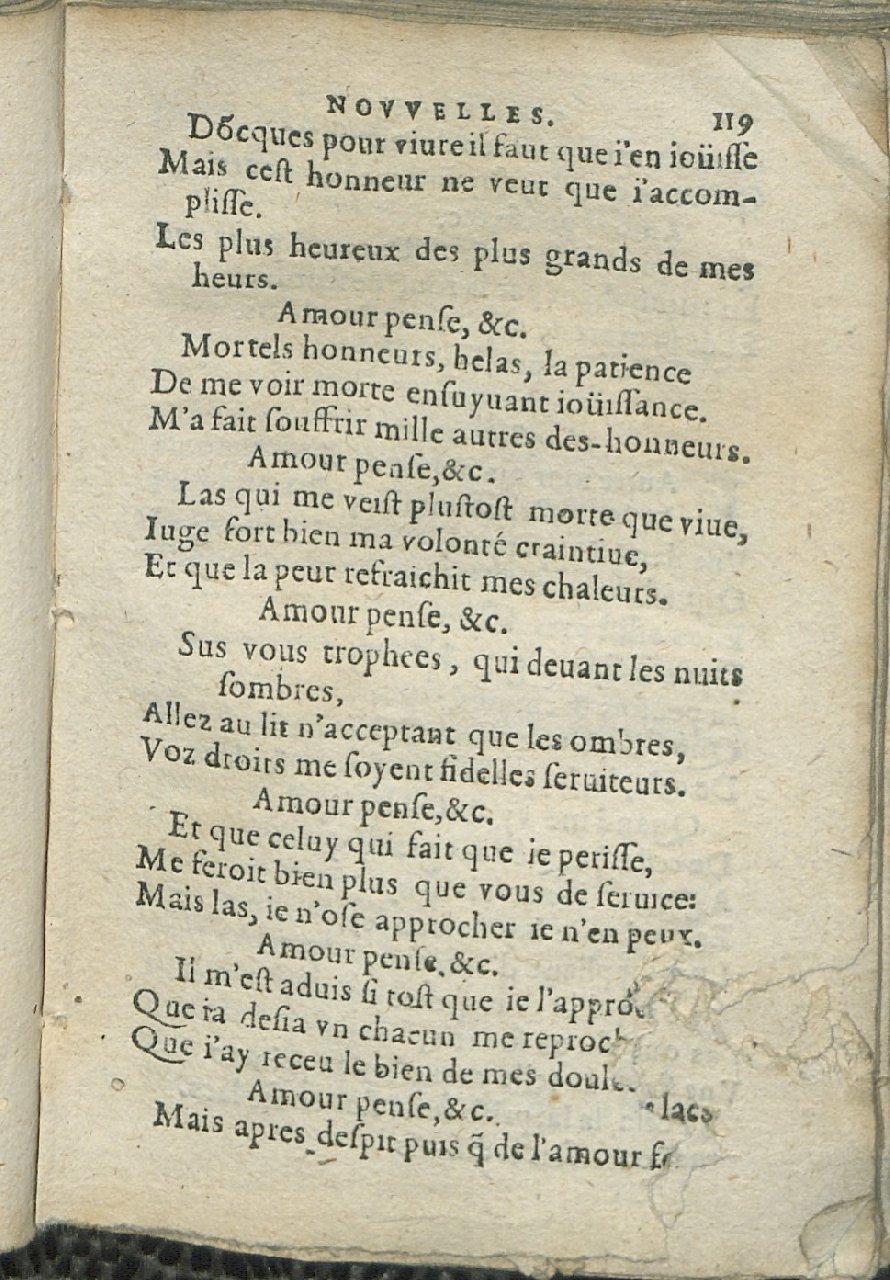 NOVVELLES. 119
Dõcques pour viure il faut que i'en ioüisse
Mais cest honneur ne veut que i'accom-
plisse.
Les plus heureux des plus grands de mes
heurs.
Amour pense, &c.
Mortels honneurs, helas, la patience
De me voir morte ensuyuant ioüissance.
M'a fait souffrir mille autres des-honneurs.
Amour pense, &c.
Las qui me veist plustost morte que viue,
Iuge fort bien ma volonté craintiue,
Et que la peur refraichit mes chaleurs.
Amour pense, &c.
Sus vous trophees, qui deuant les nuits
sombres,
Allez au lit n'acceptant que les ombres,
Voz droits me soyent fidelles seruiteurs.
Amour pense, &c.
Et que celuy qui fait que ie perisse,
Me feroit bien plus que vous de seruice:
Mais las, ie n'ose approcher ie n'en peux.
Amour pense, &c.
Il m'est aduis si tost que ie
Que ia desia vn chacun me
Que i'ay receu le bien de mes
Amour pense, &c.
Mais apres despit puis q̃ de l'amour